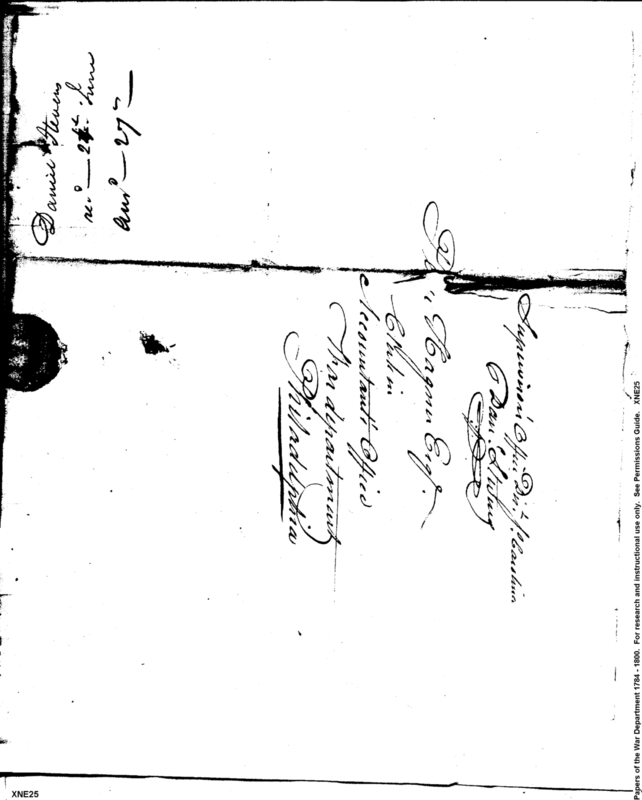 Daniel Stevens
rec.d — 24th June
ans.d — 27th —
Supervisors Office Dist. So. Carolina
Dan. Stevens
Hagner Esqr.
Clk in
Accountants Office
War department
Philadelphia
XNE25
Papers of the War Department 1784 - 1800. For research and instructional use only. See Permissions Guide. XNE25